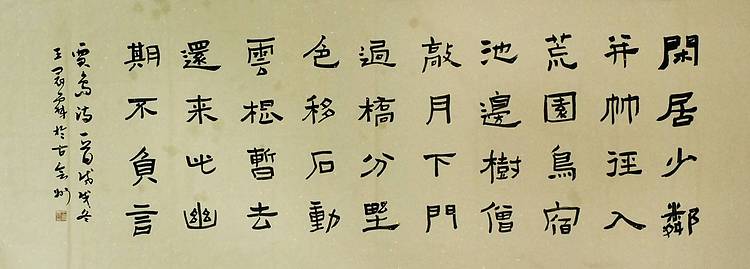 閑居少鄰
并艸徑入
荒園鳥宿
池邊樹僧
敲月下門
過橋分野
色移石動
雲根暫去
還来此幽
期不負言
賈島詩一首戊戌冬
王霖於古金州